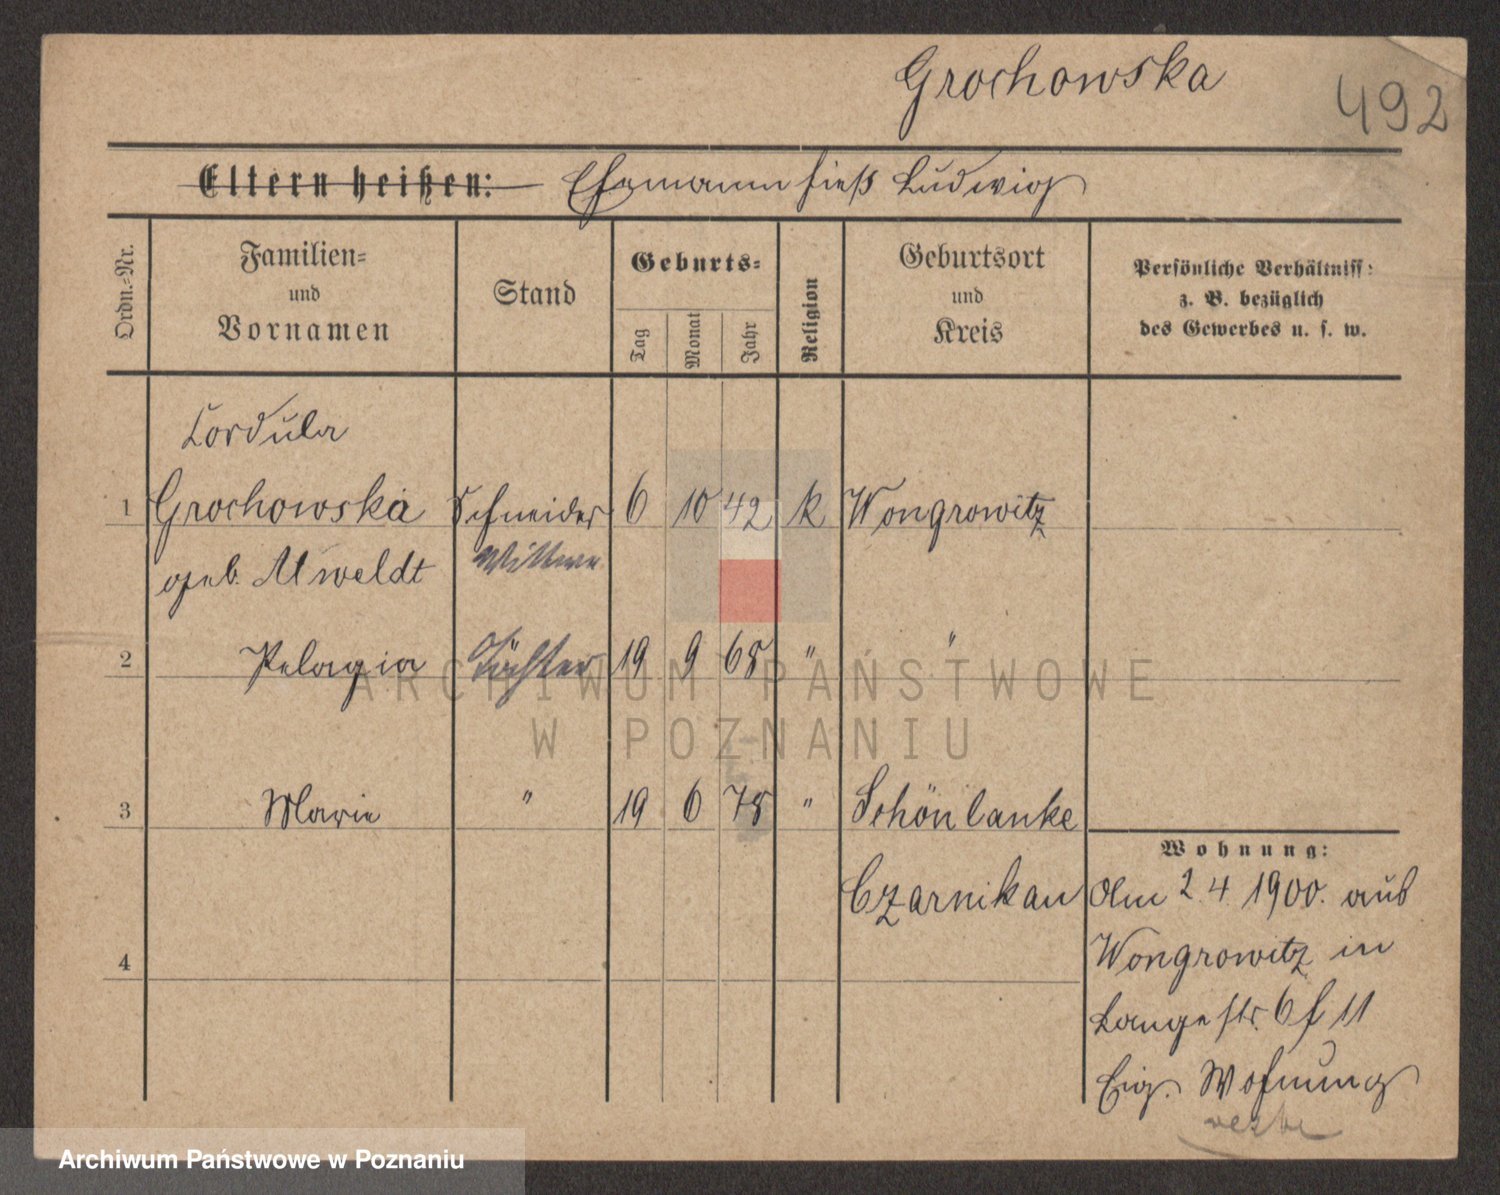 Grochowska
492
Eltern heißen: Ehemann hieß Ludwig
Ordn.-Nr.
Familien-
und
Vornamen
Stand
Geburts-
Tag
Monat
Jahr
Religion
Geburtsort
und
Kreis
Persönliche Verhältniss:
z. B. bezüglich
des Gewerbes u. s. w.
Cordula
1 Grochowska Schneider 6 10 42 k Wongrowitz
geb. Wittwe
2 Pelagia Töchter 19 9 68 " "
3 Marie " 19 6 78 " Schönlanke
Czarnikau
4
Wohnung:
Am 2.4.1900. aus
Wongrowitz in
Langestr. 6 f 11
Eig. Wohnung
ARCHIWUM PAŃSTWOWE
W POZNANIU
Archiwum Państwowe w Poznaniu